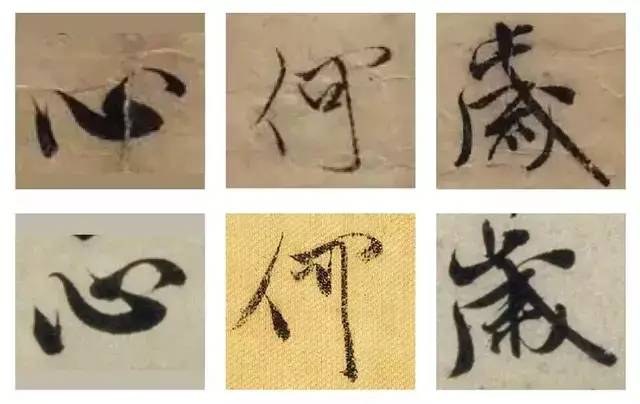 心何歲
心何歲